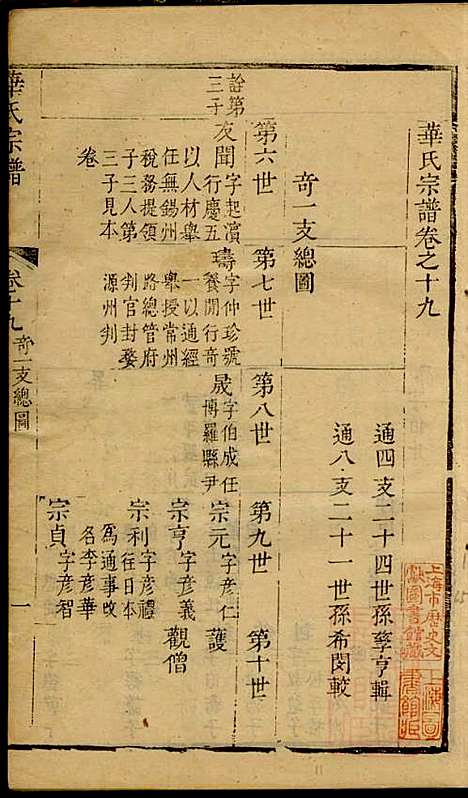 華氏宗譜卷之十九
通四支二十四世孫孳亨輯
通八支二十一世孫希閔較
奇一支總圖
第六世 第七世 第八世 第九世 第十世
詮第三子
友聞 字起濱行慶五以人材舉任無錫州稅務提領子三人第三子見本卷
璹 字仲珍號養閒行奇一以通經舉授常州路總管府判官封婺源州判
晟 字伯成任博羅縣尹
宗元 字彥仁 護
宗亨 字彥義 觀僧
宗利 字彥禮往日本為通事改名李彥華
宗貞 字彥智
華氏宗譜 卷十九 奇一支總圖 一
上海市歷史文獻圖書館藏